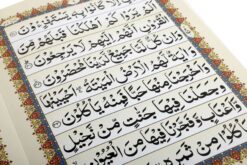 كَانُوا بِهِ يَسْتَهْزِءُونَ
أَلَمْ يَرَوْا كَمْ أَهْلَكْنَا قَبْلَهُمْ مِنَ
الْقُرُونِ أَنَّهُمْ إِلَيْهِمْ لَا يَرْجِعُونَ
وَإِنْ كُلٌّ لَمَّا جَمِيعٌ لَدَيْنَا مُحْضَرُونَ
وَآيَةٌ لَهُمُ الْأَرْضُ الْمَيْتَةُ أَحْيَيْنَاهَا
وَأَخْرَجْنَا مِنْهَا حَبًّا فَمِنْهُ يَأْكُلُونَ
وَجَعَلْنَا فِيهَا جَنَّاتٍ مِنْ نَخِيلٍ
وَفَجَّرْنَا فِيهَا مِنَ الْعُيُونِ
مِنْ ثَمَرِهِ